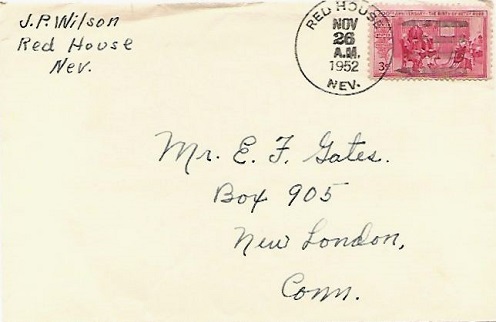 J.P. Wilson
Red House
Nev.
RED HOUSE
NOV
26
A.M.
1952
NEV.
ANNIVERSARY THE BIRTH OF
3¢
Mr. E. F. Gates.
Box 905
New London,
Conn.